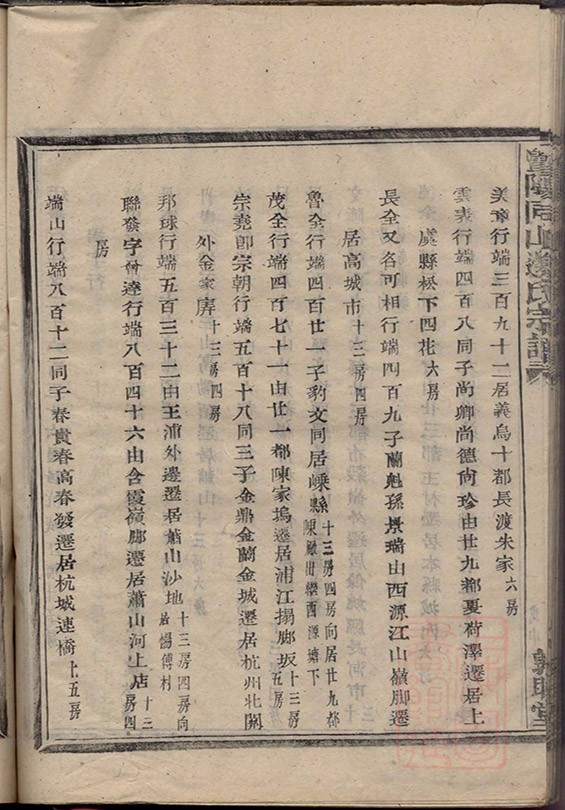 暨陽同山邊氏宗譜
敦睦堂
美章行端三百九十二居義烏十都長渡朱家六房
雲表行端四百八同子尚卿尚德尚珍由廿九都夏荷澤遷居上
虞縣崧下四花六房
長全又名可相行端四百九子蘭魁孫 瑞山西源江山嶺脚遷
居高城市十三房四房
魯全行端四百廿一子豹文同居嵊縣十三房四房向居廿九都
陳 西源塘下
茂全行端四百七十一由廿一都陳家塢遷居浦江揚脚坂十三房
五房
宗堯卽宗朝行端五百十八同三子金鼎金蘭金城遷居杭州北關
外金家 十三房四房
邦球行端五百三十二由王浦外邊遷居蕭山沙地十三房四房向
居楊傅村
聯發字 達行端八百四十六由含霞嶺脚遷居蕭山河上店十三
房四
房
端山行端八百十二同子春貴春高春發遷居杭城連橋廿五房